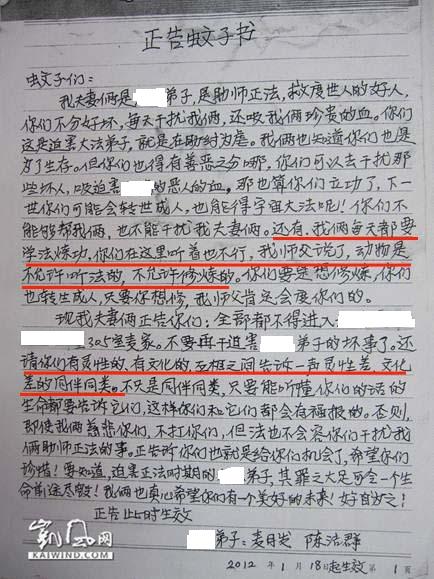 正告蚊子书
蚊子们：
我夫妻俩是 弟子，是助师正法，救度世人的好人，
你们不分好坏，每天干扰我俩，还吸我俩珍贵的血。你们
这是迫害大法弟子，就是在助纣为虐。我俩也知道你们也是
为了生存。但你们也得有善恶之分哪，你们可以去干扰那
些坏人，吸迫害 的恶人的血。那也算你们立功了，下一
世你们可能会转世成人，也能得宇宙大法呢！你们不
能够帮我俩，也不能干扰我夫妻俩。还有，我俩每天都要
学法炼功，你们在这里听着也不行，我师父说了，动物是
不允许听法的，不允许修炼的。你们要是想修炼，你们
也转生成人，只要你想修，我师父肯定会度你们的。
现我夫妻俩正告你们：全部都不得进入
305室麦家。不要再干迫害 弟子的坏事了。还
请你们有灵性的、有文化的，互相之间告诉一声灵性差、文化
差的同伴同类。不只是同伴同类，只要能听懂你们的话的
生命都要告诉它们，这样你们和它们都会有福报的。否则，
即使我俩慈悲你们，不打你们，但法也不会容你们干扰我
俩助师正法的事。正告你们也就是给你们机会了，希望你们
珍惜！要知道，迫害正法时期的 弟子，其罪之大足可令一个生
命前途尽毁！我俩也真心希望你们有一个美好的未来！好自为之！
正告此时生效
弟子：麦日发 陈浩群
2012年1月18日起生效第1页
凯风网
KAIWIND.COM